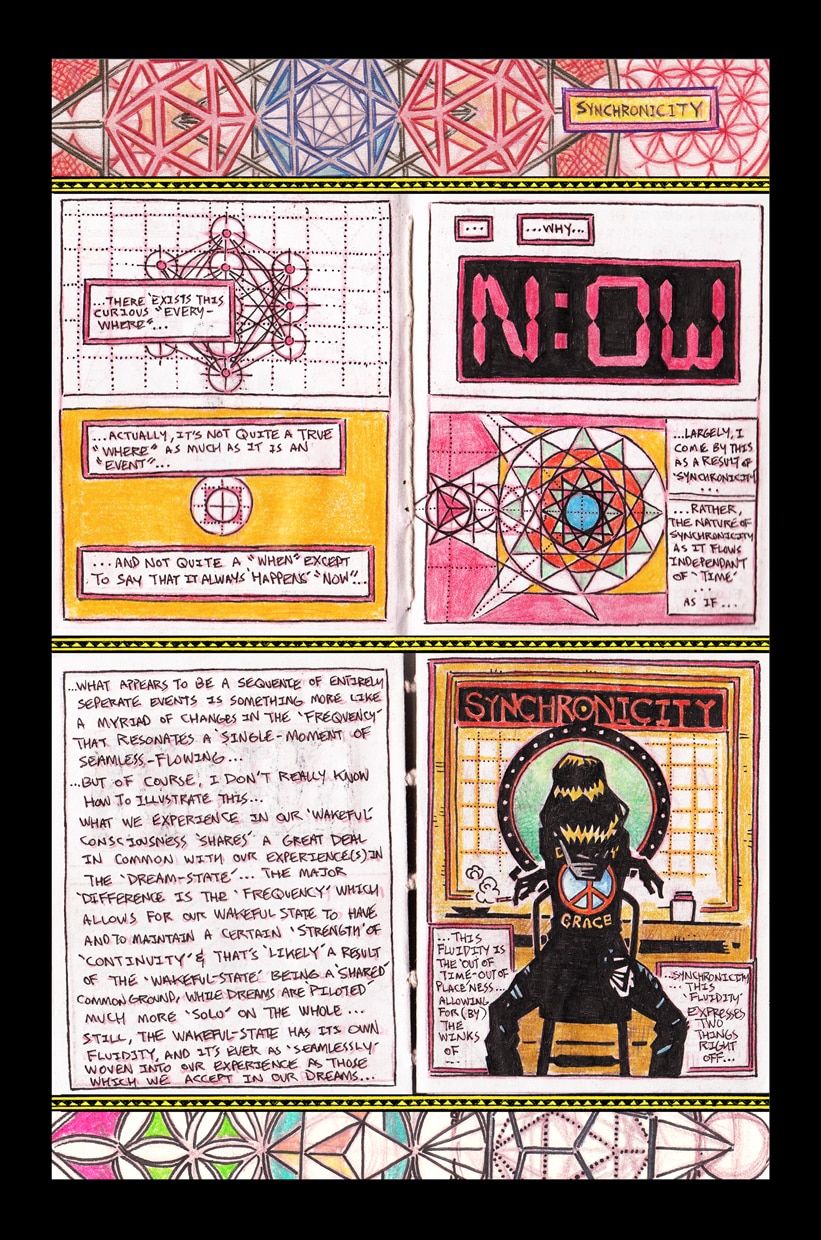 SYNCHRONICITY
...THERE EXISTS THIS
CURIOUS "EVERY-
WHERE"...
...ACTUALLY, IT'S NOT QUITE A TRUE
"WHERE" AS MUCH AS IT IS AN
"EVENT"...
...AND NOT QUITE A "WHEN" EXCEPT
TO SAY THAT IT ALWAYS 'HAPPENS' "NOW"...
...
...WHY...
N:OW
...LARGELY, I
COME BY THIS
AS A RESULT OF
'SYNCHRONICITY'
...
...RATHER,
THE NATURE OF
SYNCHRONICITY
AS IT FLOWS
INDEPENDANT
OF 'TIME'
...
AS IF...
...WHAT APPEARS TO BE A SEQUENCE OF ENTIRELY
SEPERATE EVENTS IS SOMETHING MORE LIKE
A MYRIAD OF CHANGES IN THE 'FREQUENCY'
THAT RESONATES A 'SINGLE-MOMENT' OF
SEAMLESS-FLOWING...
...BUT OF COURSE, I DON'T REALLY KNOW
HOW TO ILLUSTRATE THIS...
WHAT WE EXPERIENCE IN OUR 'WAKEFUL'
CONSCIOUSNESS 'SHARES' A GREAT DEAL
IN COMMON WITH OUR EXPERIENCE(S) IN
THE 'DREAM-STATE'... THE MAJOR
'DIFFERENCE IS THE 'FREQUENCY' WHICH
ALLOWS FOR OUR WAKEFUL STATE TO HAVE
AND TO MAINTAIN A CERTAIN 'STRENGTH' OF
'CONTINUITY' & THAT'S 'LIKELY' A RESULT
OF THE 'WAKEFUL-STATE' BEING A 'SHARED'
COMMON GROUND, WHILE DREAMS ARE 'PILOTED'
MUCH MORE 'SOLO' ON THE WHOLE...
STILL, THE WAKEFUL-STATE HAS ITS OWN
FLUIDITY, AND IT'S EVER AS 'SEAMLESSLY'
WOVEN INTO OUR EXPERIENCE AS THOSE
WHICH WE ACCEPT IN OUR DREAMS...
SYNCHRONICITY
GRACE
...THIS
FLUIDITY IS
THE 'OUT OF
TIME-OUT OF
PLACE'NESS...
ALLOWING
FOR (BY)
THE
WINKS
OF
...
...SYNCHRONICITY
... THIS
'FLUIDITY'
EXPRESSES
TWO
THINGS
RIGHT
OFF...